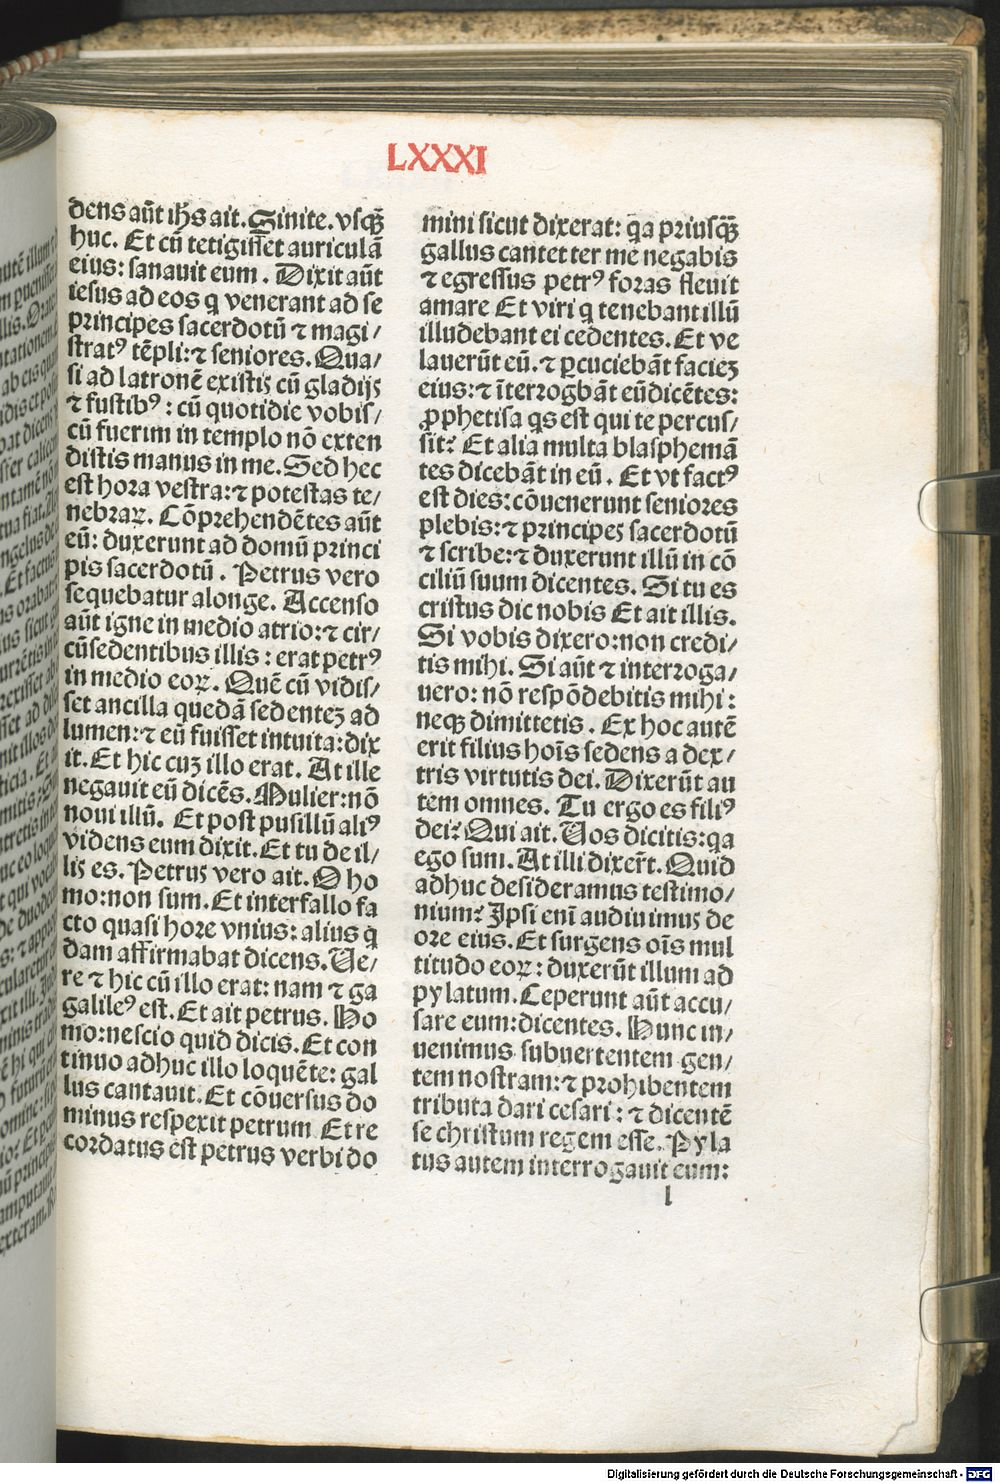 LXXXI
dens aūt ih̄s ait. Sinite. vsqꝫ
huc. Et cū tetigisset auriculā
eius: sanauit eum. Dixit aūt
iesus ad eos q̄ venerant ad se
principes sacerdotū ⁊ magi/
stratꝰ tēpli: ⁊ seniores. Qua/
si ad latronē existis cū gladijs
⁊ fustibꝰ: cū quotidie vobis/
cū fuerim in templo nō exten
distis manus in me. Sed hec
est hora vestra: ⁊ potestas te/
nebraꝝ. Cōprehendētes aūt
eū: duxerunt ad domū princi
pis sacerdotū. Petrus vero
sequebatur alonge. Accenso
aūt igne in medio atrio: ⁊ cir/
cūsedentibus illis: erat petrꝰ
in medio eoꝝ. Quē cū vidis/
set ancilla quedā sedenteꝫ ad
lumen: ⁊ eū fuisset intuita: dix
it. Et hic cuꝫ illo erat. At ille
negauit eū dicēs. Mulier: nō
noui illū. Et post pusillū aliꝰ
videns eum dixit. Et tu de il/
lis es. Petrus vero ait. O ho
mo: non sum. Et interfallo fa
cto quasi hore vnius: alius q̄
dam affirmabat dicens. Ue/
re ⁊ hic cū illo erat: nam ⁊ ga
galileꝰ est. Et ait petrus. Ho
mo: nescio quid dicis. Et con
tinuo adhuc illo loquēte: gal
lus cantauit. Et cōuersus do
minus respexit petrum Et re
cordatus est petrus verbi do
mini sicut dixerat: q̄a priusqꝫ̄
gallus cantet ter me negabis
⁊ egressus petrꝰ foras fleuit
amare Et viri q̄ tenebant illū
illudebant ei cedentes. Et ve
lauerūt eū. ⁊ ꝑcuciebāt facieꝫ
eius: ⁊ īterrogbāt eū dicētes:
ꝓphetisa q̄s est qui te percus/
sit? Et alia multa blasphemā
tes dicebāt in eū. Et vt factꝰ
est dies: cōuenerunt seniores
plebis: ⁊ principes sacerdotū
⁊ scribe: ⁊ duxerunt illū in cō
ciliū suum dicentes. Si tu es
cristus dic nobis Et ait illis.
Si vobis dixero: non credi/
tis mihi. Si aūt ⁊ interroga/
uero: nō respōdebitis mihi:
neqꝫ dimittetis. Ex hoc autē
erit filius hoīs sedens a dex/
tris virtutis dei. Dixerūt au
tem omnes. Tu ergo es filiꝰ
dei? Qui ait. Uos dicitis: q̄a
ego sum. At illi dixerūt. Quid
adhuc desideramus testimo/
nium? Ipsi enī audiuimus de
ore eius. Et surgens oīs mul
titudo eoꝝ: duxerūt illum ad
pylatum. Ceperunt aūt accu/
sare eum: dicentes. Hunc in/
uenimus subuertentem gen/
tem nostram: ⁊ prohibentem
tributa dari cesari: ⁊ dicentē
se christum regem esse. Pyla
tus autem interrogauit eum:
l
Digitalisierung gefördert durch die Deutsche Forschungsgemeinschaft - DFG